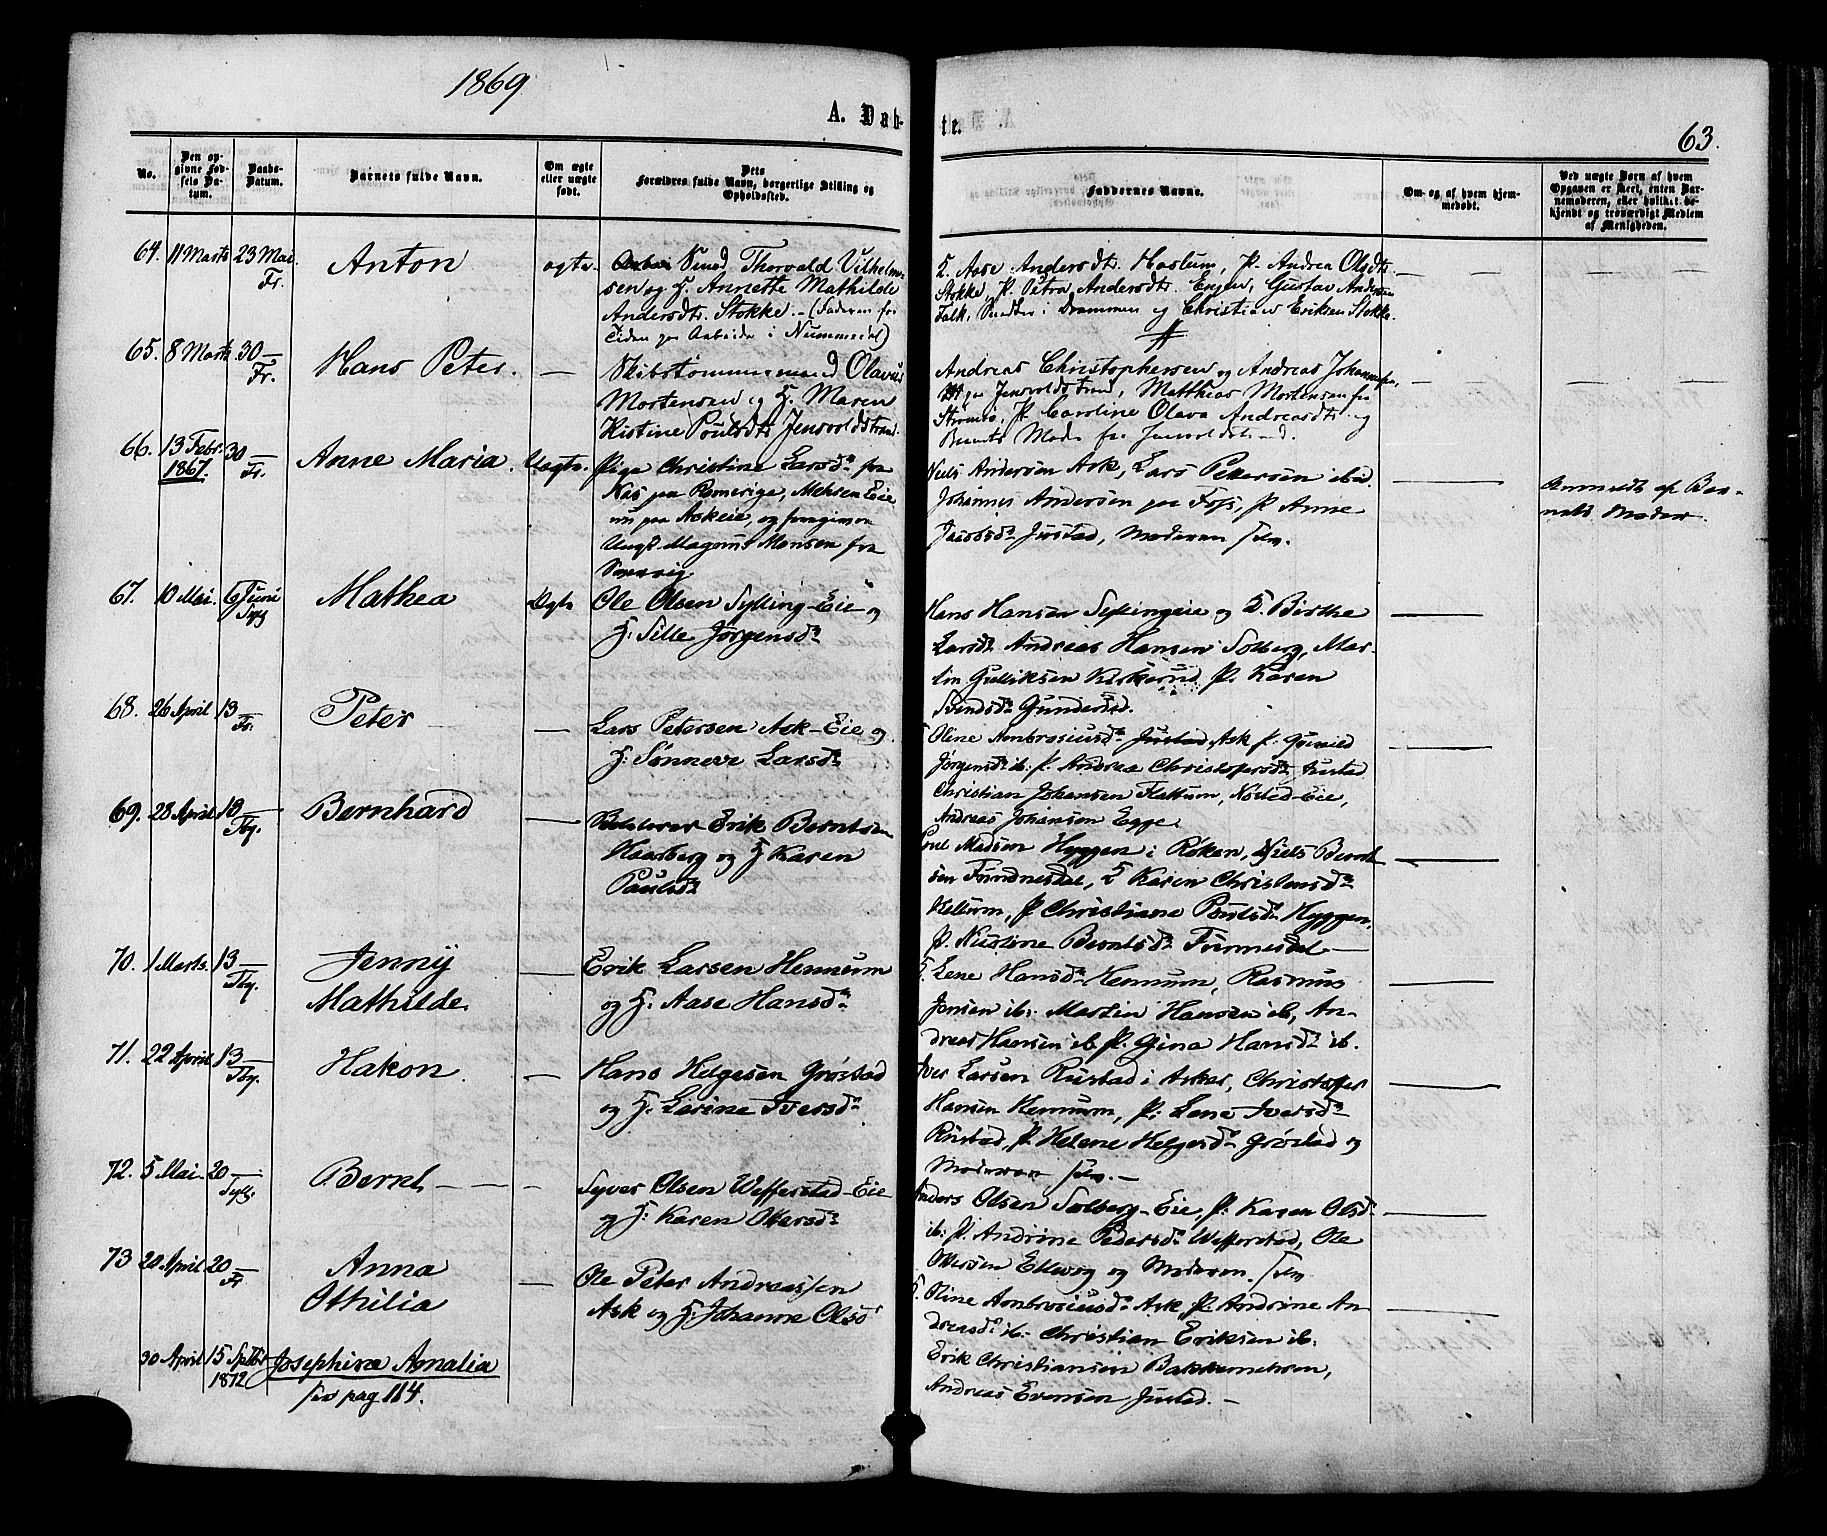 1869
A. Dab-
te.
63.
No.
Den op-
givne Fød-
sels Da-
tum.
Daabs-
Datum.
Barnets fulde Navn.
Om ægte
eller uægte
født.
Dets
Forældres fulde Navn, borgerlige Stilling og
Opholdssted.
Faddernes Navne.
Om og af hvem hjem-
medøbt.
Ved uægte Børn af hvem
Opgaven er skeet, enten Bar-
nemoderen, eller hvilket be-
kjendt og troværdigt Medlem
af Menigheden.
64. 11 Marts 23 Mai Fr.
Anton
ægte.
Thorvald Vilhelm-
sen og H. Annette Mathilde
Andersdtr. Stokke. - (Faderen for
Tiden paa Arbeide i Nummedal)
S. Aase Andersdtr. Haslum, P. Andrea Olsdtr.
Stokke, P. Petra Andersdtr. Engen, Gustav Andersen
Falk, i Drammen og Christian Eriksen Stokke.
65. 8 Marts 30 — Fr.
Hans Peter.
—
Skibstømmermand Olavus
Mortensen og H. Maren
Kistine Poulsdtr. Jensvoldstrand.
Andreas Christophersen og Andreas Johannesen
paa Jensvoldstrand, Matthias Mortensen fra
Strømsø, P. Caroline Olava Andreasdtr. og
Barnets Moder fra Jensvoldstrand.
66. 13 Febr. 1867. 30 — Fr.
Anne Maria.
Uægte.
Pige Christine Larsdr. fra
Næs paa Romerige, Eie
nu paa Askeie, og
Ungk. Magnus Monsen fra
Niels Andersen Ask, Lars Pettersen ibid.
Johannes Andersen paa Foss, P. Anne
Jacobsdr. Justad, Moderen selv.
Anmeldt af Bar-
nets Moder.
67. 10 Mai. 6 Juni Syl
Mathea
Ægte
Ole Olsen Sylling-Eie og
H: Sille Jørgensdr.
Hans Hansen Syllingeie og S. Birthe
Larsdr. Andreas Hansen Solberg, Mar-
tin Gulliksen Kirkerud P. Karen
Svendsdr. Gunderud.
68. 26 April 13 — Fr.
Peter
—
Lars Petersen Ask-Eie og
H: Sønneve Larsdr.
S. Oline Ambrosiusdr. Justad Ask P. Gunild
Jørgensdr. ib: P. Andrea Christophersdr. Justad
Christian Johansen Flattum, Eie,
Andreas Johansen Egge.
69. 28 April 18 — Tby.
Bernhard
—
Erik Berntsen
Haarberg og H Karen
Paulsdr.
Poul Madsen Hyggen i Røken, Niels Bernt-
sen S Karen Christensdr.
Kittum, P. Christiane Poulsdr. Hyggen,
P. Berntsdr.
70. 1 Marts. 13 — Tby.
Jenny
Mathilde.
—
Erik Larsen Hennum
og H. Aase Hansdr.
S. Lene Hansdr. Hennum, Rasmus
Jensen ib: Martin Hansen ib, An-
dreas Hansen ib P. Gina Hansdr. ib.
71. 22 April 13 — Tby.
Hakon.
—
Hans Helgesen Grøstad
og H. Larine Iversdr.
Iver Larsen Rustad i Asker, Christopher
Hansen Hennum, P: Lene Iversdr.
Rustad, P. Helene Helgesdr. Grøstad og
Moderen selv.
72. 5 Mai. 20 — Syll.
Bernt
—
Syver Olsen Wefferstad-Eie
og H: Karen Ottersdr.
Anders Olsen Solberg-Eie, P: Karen Olsd-
ib: P. Andrine Pedersdr. Wefferstad, Ole
Ottersen og Moderen selv
73 20 April 20 — Fr
Anna
Othilia
—
Ole Peter Andreassen
Ask og H. Johanne Olsd
S. Oline Ambrosiusdr. Ask, P. Andrine An-
dreasdr. ib. Christian Eriksen ib.
Erik Christiansen
Andreas Evensen Justad.
30 April 15 Septbr 1872
Josephine Amalia
see pag 114.